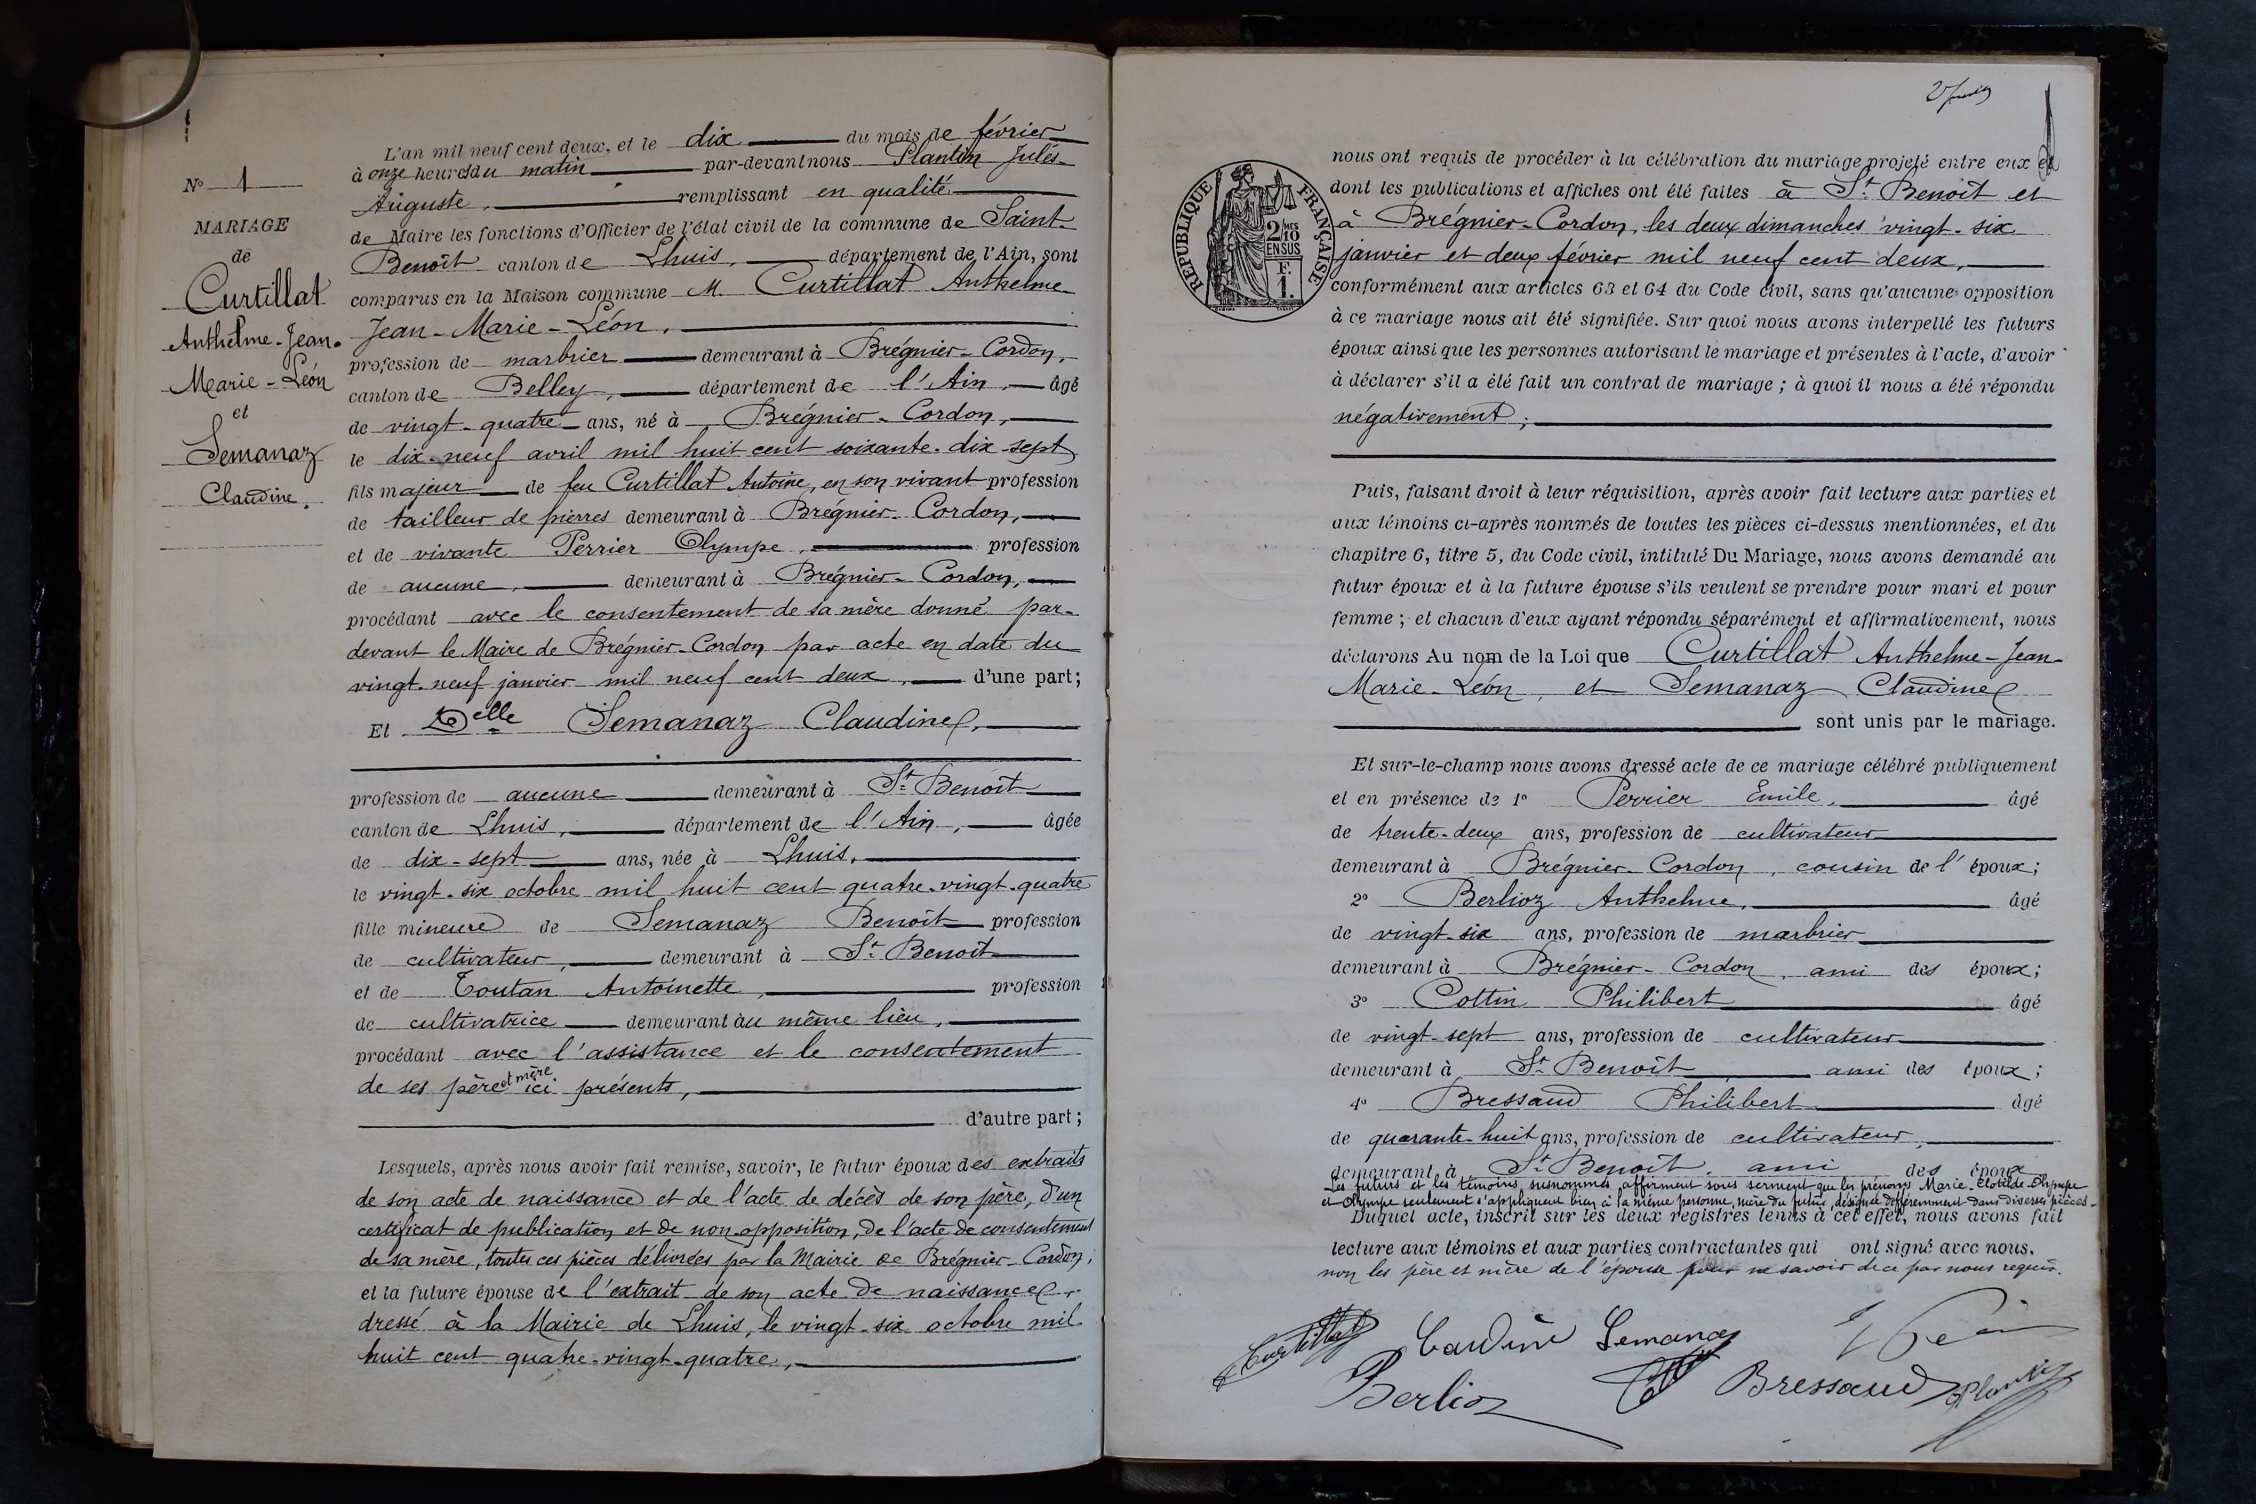 N° 1
MARIAGE
de
Curtillat
Anthelme-Jean-
Marie-Léon
et
Semanaz
Claudine.
L'an mil neuf cent deux, et le dix du mois de février
à onze heures du matin par-devant nous Plantin Jules-
Auguste, remplissant en qualité
de Maire les fonctions d'Officier de l'état civil de la commune de Saint-
Benoît canton de Lhuis, département de l'Ain, sont
comparus en la Maison commune M. Curtillat Anthelme
Jean-Marie-Léon,
profession de marbrier demeurant à Brégnier-Cordon,
canton de Belley, département de l'Ain, âgé
de vingt-quatre ans, né à Brégnier-Cordon,
le dix-neuf avril mil huit cent soixante-dix-sept
fils majeur de feu Curtillat Antoine, en son vivant profession
de tailleur de pierres demeurant à Brégnier-Cordon,
et de vivante Perrier Olympe, profession
de aucune, demeurant à Brégnier-Cordon,
procédant avec le consentement de sa mère donné par-
devant le Maire de Brégnier-Cordon par acte en date du
vingt-neuf janvier mil neuf cent deux, d'une part;
Et Delle Semanaz Claudine,
profession de aucune demeurant à St Benoît
canton de Lhuis, département de l'Ain, âgée
de dix-sept ans, née à Lhuis,
le vingt-six octobre mil huit cent quatre-vingt-quatre
fille mineure de Semanaz Benoît profession
de cultivateur, demeurant à St Benoît
et de Toutan Antoinette, profession
de cultivatrice demeurant au même lieu,
procédant avec l'assistance et le consentement
de ses père et mère ici présents,
d'autre part;
Lesquels, après nous avoir fait remise, savoir, le futur époux des extraits
de son acte de naissance et de l'acte de décès de son père, d'un
certificat de publication et de non opposition, de l'acte de consentement
de sa mère, toutes ces pièces délivrées par la Mairie de Brégnier-Cordon,
et la future épouse de l'extrait de son acte de naissance
dressé à la Mairie de Lhuis, le vingt-six octobre mil
huit cent quatre-vingt-quatre,
RÉPUBLIQUE FRANÇAISE
2/10 EN SUS
F.
1.
nous ont requis de procéder à la célébration du mariage projeté entre eux et
dont les publications et affiches ont été faites à St Benoît et
à Brégnier-Cordon, les deux dimanches vingt-six
janvier et deux février mil neuf cent deux,
conformément aux articles 63 et 64 du Code civil, sans qu'aucune opposition
à ce mariage nous ait été signifiée. Sur quoi nous avons interpellé les futurs
époux ainsi que les personnes autorisant le mariage et présentes à l'acte, d'avoir
à déclarer s'il a été fait un contrat de mariage ; à quoi il nous a été répondu
négativement;
Puis, faisant droit à leur réquisition, après avoir fait lecture aux parties et
aux témoins ci-après nommés de toutes les pièces ci-dessus mentionnées, et du
chapitre 6, titre 5, du Code civil, intitulé Du Mariage, nous avons demandé au
futur époux et à la future épouse s'ils veulent se prendre pour mari et pour
femme ; et chacun d'eux ayant répondu séparément et affirmativement, nous
déclarons Au nom de la Loi que Curtillat Anthelme-Jean-
Marie-Léon, et Semanaz Claudine
sont unis par le mariage.
Et sur-le-champ nous avons dressé acte de ce mariage célébré publiquement
et en présence de 1° Perrier Emile, âgé
de trente-deux ans, profession de cultivateur
demeurant à Brégnier-Cordon, cousin de l'époux;
2° Berlioz Anthelme, âgé
de vingt-six ans, profession de marbrier
demeurant à Brégnier-Cordon, ami des époux;
3° Cottin Philibert âgé
de vingt-sept ans, profession de cultivateur
demeurant à St Benoît, ami des époux;
4° Bressaud Philibert âgé
de quarante-huit ans, profession de cultivateur,
demeurant à St Benoît, ami des époux
Les futurs et les témoins susnommés affirment sous serment que les prénoms Marie-Clotilde-Olympe
et Olympe seulement s'appliquent bien à la même personne, mère du futur, désignée différemment dans diverses pièces.
Duquel acte, inscrit sur les deux registres tenus à cet effet, nous avons fait
lecture aux témoins et aux parties contractantes qui ont signé avec nous,
non les père et mère de l'épouse pour ne savoir de ce par nous requis.
Curtillat
Claudine Semanaz
Berlioz
Bressaud
Plantin